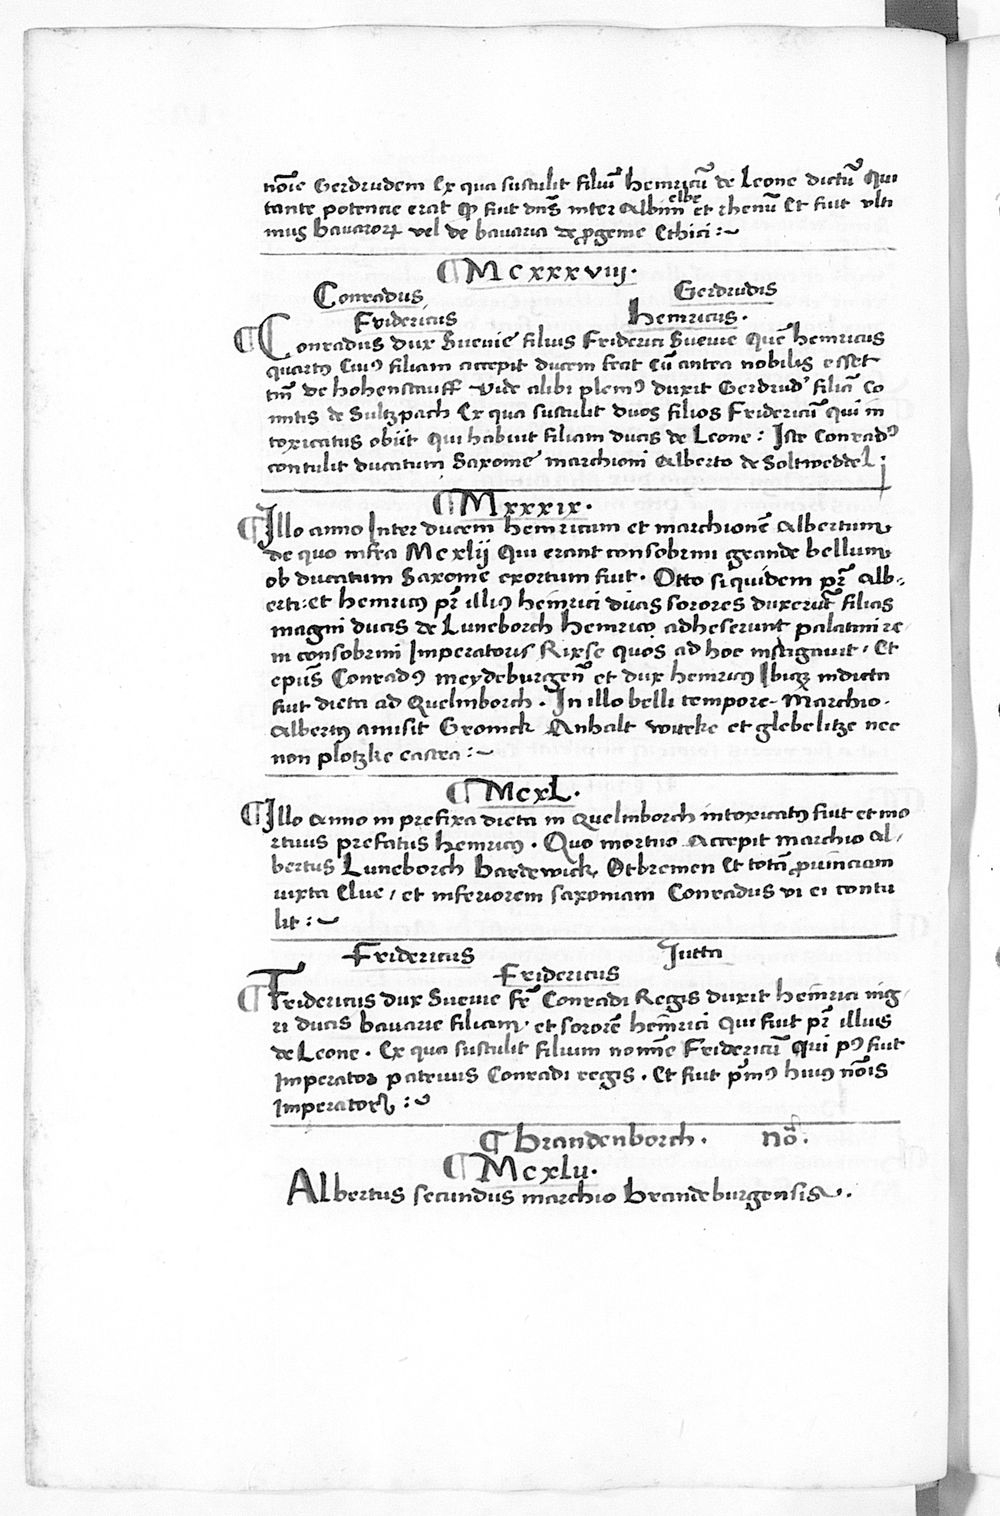 noıe Gerdrudem Ex qua sustulit filiū hemricū de Leone dictū Qui
tante potencie erat ꝙ fuit dn̄s inter Albim elbe et rhenū Et fuit vlti
mus bavaroꝝ vel de bavaria de ꝓgenie Ethici :~
¶ Mcxxxviij.
Conradus Gerdrudis
Fridericus hemricus.
¶ Conradus dux Suevie filius Friderici Suevie Quē hemricus
quartꝰ Cuiꝰ filiam accepit ducem fecit Cū antea nobilis esset
tm̄ de hohenstauff vide alibi plenıꝰ duxit Gerdrud' filiā Co
mitis de Sultzpach Ex qua sustulit duos filios Fridericū qui in
toxicatus obiit Qui habuit filiam ducis de Leone : Iste Conradꝰ
contulit ducatum Saxonie marchioni Alberto de Soltweddel ;
¶ Mxxxix.
¶ Illo anno Inter ducem hemricum et marchionē Albertum
de quo infra Mcxlij Qui erant consobrini grande bellum
ob ducatum Saxonie exortum fuit. Otto siquidem pr̄ Alb-
erti : et hemricꝰ pr̄ illiꝰ heinrici duas sorores duxerūt filias
magni ducis de Luneborch hemricꝰ adheserunt palatini re-
ni consobrini Imperatoris Rixse quos ad hoc instigavit, Et
epūs Conradꝰ meydeburgen̄ et dux hemricꝰ Ibiqꝫ indicta
fuit dieta ad Quelinborch. In illo belli tempore Marchio.
Albertꝰ amisit Gronick Anhalt witeke et glebelitze nec
non plotzke castra :~
¶ Mcxl.
¶ Illo Anno in prefixa dieta in Quelinborch intoxicatꝰ fuit et mo
rtuus prefatus hemricꝰ. Quo mortuo Accepit marchio Al-
bertus Luneborch Bardewick, Et bremen Et totā ꝓvinciam
iuxta Elve, et inferiorem saxoniam Conradus vi ei contu
lit :~
Fridericus Jutta
Fridericus
¶ Fridericus dux Suevie fr̄ Conradi Regis duxit heinrici nig-
ri ducis bavarie filiam, et sororē heinrici qui fuit pr̄ illius
de Leone. Ex qua sustulit filium nomīe Fridericū Qui pꝰ fuit
Imperator patruus Conradi regis. Et fuit pͥmꝰ huiꝰ nōis
Imperatorꝝ :~
¶ brandenborch. nō.
¶ Mcxlij.
Albertus secundus marchio brandeburgensis.